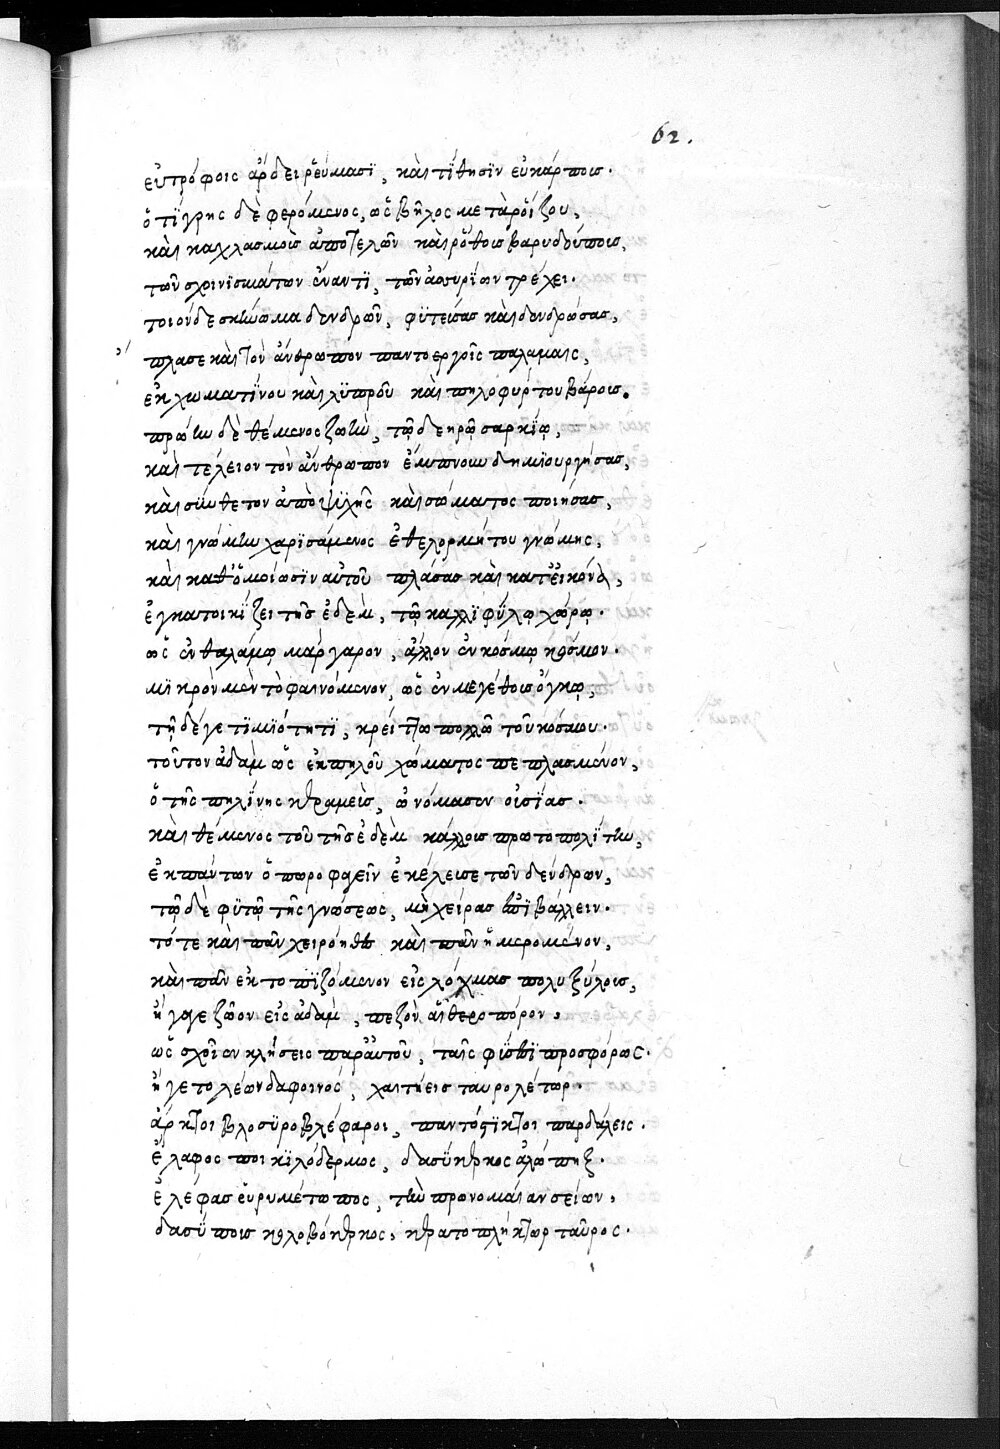 62.
εὐτρόφοις ἄρδει ῥεύμασϊ, καὶ τίθησϊν εὐκάρπους.
ὁ τίγρης δὲ φερόμενος, ὡς βῆλος μετὰ ῥοίζου,
καὶ καχλασμοὺς ἀποτελῶν καὶ ῥόθους βαρυδούπους,
τῶν σχοινϊσμάτων ἔναντϊ, τῶν ἀσυρίων τρέχει.
τοιόνδε σκήνωμα δένδρων, φϋτεύσας καὶ δενδρώσας,
πλασε καὶ τὸν ἄνθρωπον παντοεργοῖς παλάμαις,
ἐκ χωματίνου καὶ λϋπροῦ καὶ πηλοφύρτου βάρους.
πρώην δὲ θέμενος ζωὴν, τῷ δε ηρῷ σαρκίῳ,
καὶ τέλειον τὸν ἄνθρωπον ἔμπνουν δημϊουργήσας,
καὶ σύνθετον ἀπὸ ψϋχῆς καὶ σώματος ποιήσας,
καὶ γνώμην χαρϊσάμενος ἐθελορμήτου γνώμης,
καὶ καθ' ὁμοίωσϊν αὐτοῦ πλάσας καὶ κατ' εἰκόνα,
ἐγκατοικΐζει τῆς ἐδὲμ, τῷ καλλϊφύλῳ χώρῳ.
ὡς ἐν θαλάμῳ μάργαρον, ἄλλον ἐν κόσμῳ κόσμον.
μϊκρὸν μὲν τὸ φαινόμενον, ὡς ἐν μεγέθους ὄγκῳ,
τῇ δέ γε τϊμϊότητϊ, κρείττω πολλῶ τοῦ κόσμου.
τοῦτον ἀδὰμ ὡς ἐκ πηλοῦ χώματος πεπλασμένον,
ὁ τῆς πηλΐνης κεραμεὺς, ὠνόμασεν οὐσΐας.
καὶ θέμενος τοῦ τῆς ἐδὲμ κάλλους πρωτοπολΐτην,
ἐκ πάντων ὀπωροφαγεῖν ἐκέλευσε τῶν δένδρων,
τῷ δὲ φϋτῷ τῆς γνώσεως, μὴ χεῖρας ἐπϊβάλλειν.
τότε καὶ πᾶν χειρόηθες καὶ πᾶν ἡμερομένον,
καὶ πᾶν ἐκτοπϊζόμενον εἰς λόχμας πολυξύλους,
ἤγαγε ζῶον εἰς ἀδὰμ, πεζὸν αἰθεροπόρον,
ὡς σχοῖεν κλήσεις παρ' αὐτοῦ, ταῖς φύσεσϊ προσφόρως.
ἤγετο λέων δαφοινός, χαιτήεις ταυρολέτωρ.
ἄρκτοι βλοσϋροβλέφαροι, παντόστϊκτοι παρδάλεις.
ἔλαφος ποικϊλόδερμος, δασύκερκος ἀλώπηξ.
ἐλέφας εὐρυμέτωπος, τὴν προνομαίαν σείων,
δασΰπους κολοβόκερκος, κερατοπλήκτωρ ταῦρος.